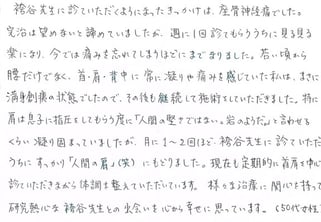 袴谷先生に診ていただくようになったきっかけは、座骨神経痛でした。
完治は望めないと諦めていましたが、週に1回診てもらううちに見る見る
楽になり、今では痛みを忘れてしまうほどにまでなりました。若い頃から
腰だけでなく、首・肩・背中に常に凝りや痛みを感じていた私は、まさに
満身創痍の状態でしたので、その後も継続して施術をしていただきました。特に
肩は息子に指圧をしてもらう度に「人間の堅さではない。岩のようだ。」と言わせる
くらい凝り固まっていましたが、月に1〜2回ほど、袴谷先生に診ていただ
くうちにすっかり「人間の肩」(笑)にもどりました。現在も定期的に首肩を中心に
診ていただきながら体調を整えていただいています。様々な治療に関心を持って
研究熱心な袴谷先生との出会いを心から幸せに思っています。(50代女性)